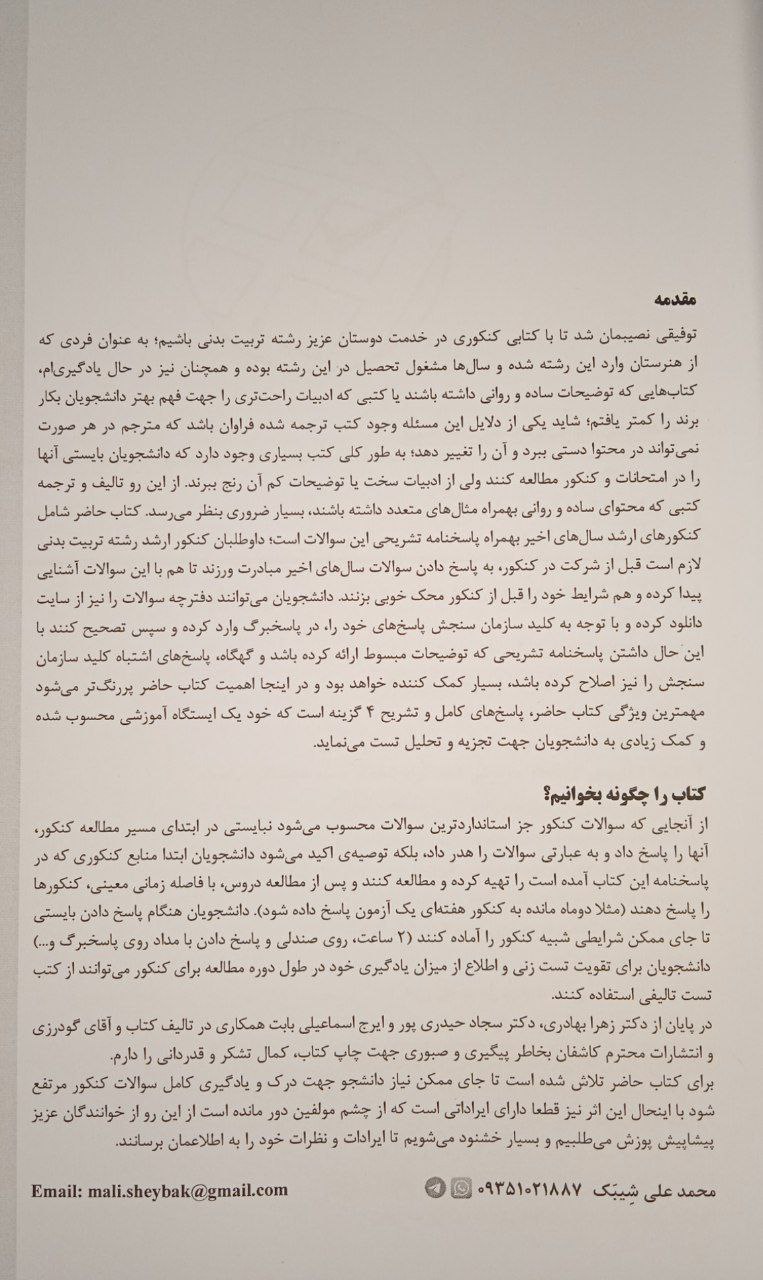 مقدمه
توفیقی نصیبمان شد تا با کتابی کنکوری در خدمت دوستان عزیز رشته تربیت بدنی باشیم؛ به عنوان فردی که
از هنرستان وارد این رشته شده و سال‌ها مشغول تحصیل در این رشته بوده و همچنان نیز در حال یادگیری‌ام،
کتاب‌هایی که توضیحات ساده و روانی داشته باشند یا کتبی که ادبیات راحت‌تری را جهت فهم بهتر دانشجویان بکار
برند را کمتر یافتم؛ شاید یکی از دلایل این مسئله وجود کتب ترجمه شده فراوان باشد که مترجم در هر صورت
نمی‌تواند در محتوا دستی ببرد و آن را تغییر دهد؛ به طور کلی کتب بسیاری وجود دارد که دانشجویان بایستی آنها
را در امتحانات و کنکور مطالعه کنند ولی از ادبیات سخت یا توضیحات کم آن رنج ببرند. از این رو تالیف و ترجمه
کتبی که محتوای ساده و روانی بهمراه مثال‌های متعدد داشته باشند، بسیار ضروری بنظر می‌رسد. کتاب حاضر شامل
کنکورهای ارشد سال‌های اخیر بهمراه پاسخنامه تشریحی این سوالات است؛ داوطلبان کنکور ارشد رشته تربیت بدنی
لازم است قبل از شرکت در کنکور، به پاسخ دادن سوالات سال‌های اخیر مبادرت ورزند تا هم با این سوالات آشنایی
پیدا کرده و هم شرایط خود را قبل از کنکور محک خوبی بزنند. دانشجویان می‌توانند دفترچه سوالات را نیز از سایت
دانلود کرده و با توجه به کلید سازمان سنجش پاسخ‌های خود را، در پاسخبرگ وارد کرده و سپس تصحیح کنند با
این حال داشتن پاسخنامه تشریحی که توضیحات مبسوط ارائه کرده باشد و گهگاه، پاسخ‌های اشتباه کلید سازمان
سنجش را نیز اصلاح کرده باشد، بسیار کمک کننده خواهد بود و در اینجا اهمیت کتاب حاضر پررنگ‌تر می‌شود
مهمترین ویژگی کتاب حاضر، پاسخ‌های کامل و تشریح ۴ گزینه است که خود یک ایستگاه آموزشی محسوب شده
و کمک زیادی به دانشجویان جهت تجزیه و تحلیل تست می‌نماید.
کتاب را چگونه بخوانیم؟
از آنجایی که سوالات کنکور جز استانداردترین سوالات محسوب می‌شود نبایستی در ابتدای مسیر مطالعه کنکور،
آنها را پاسخ داد و به عبارتی سوالات را هدر داد، بلکه توصیه‌ی اکید می‌شود دانشجویان ابتدا منابع کنکوری که در
پاسخنامه این کتاب آمده است را تهیه کرده و مطالعه کنند و پس از مطالعه دروس، با فاصله زمانی معینی، کنکورها
را پاسخ دهند (مثلا دوماه مانده به کنکور هفته‌ای یک آزمون پاسخ داده شود). دانشجویان هنگام پاسخ دادن بایستی
تا جای ممکن شرایطی شبیه کنکور را آماده کنند (۲ ساعت، روی صندلی و پاسخ دادن با مداد روی پاسخبرگ و...)
دانشجویان برای تقویت تست زنی و اطلاع از میزان یادگیری خود در طول دوره مطالعه برای کنکور می‌توانند از کتب
تست تالیفی استفاده کنند.
در پایان از دکتر زهرا بهادری، دکتر سجاد حیدری پور و ایرج اسماعیلی بابت همکاری در تالیف کتاب و آقای گودرزی
و انتشارات محترم کاشفان بخاطر پیگیری و صبوری جهت چاپ کتاب، کمال تشکر و قدردانی را دارم.
برای کتاب حاضر تلاش شده است تا جای ممکن نیاز دانشجو جهت درک و یادگیری کامل سوالات کنکور مرتفع
شود با اینحال این اثر نیز قطعا دارای ایراداتی است که از چشم مولفین دور مانده است از این رو از خوانندگان عزیز
پیشاپیش پوزش می‌طلبیم و بسیار خشنود می‌شویم تا ایرادات و نظرات خود را به اطلاعمان برسانند.
محمد علی شِیبَک ۰۹۳۵۱۰۲۱۸۸۷ Email: mali.sheybak@gmail.com